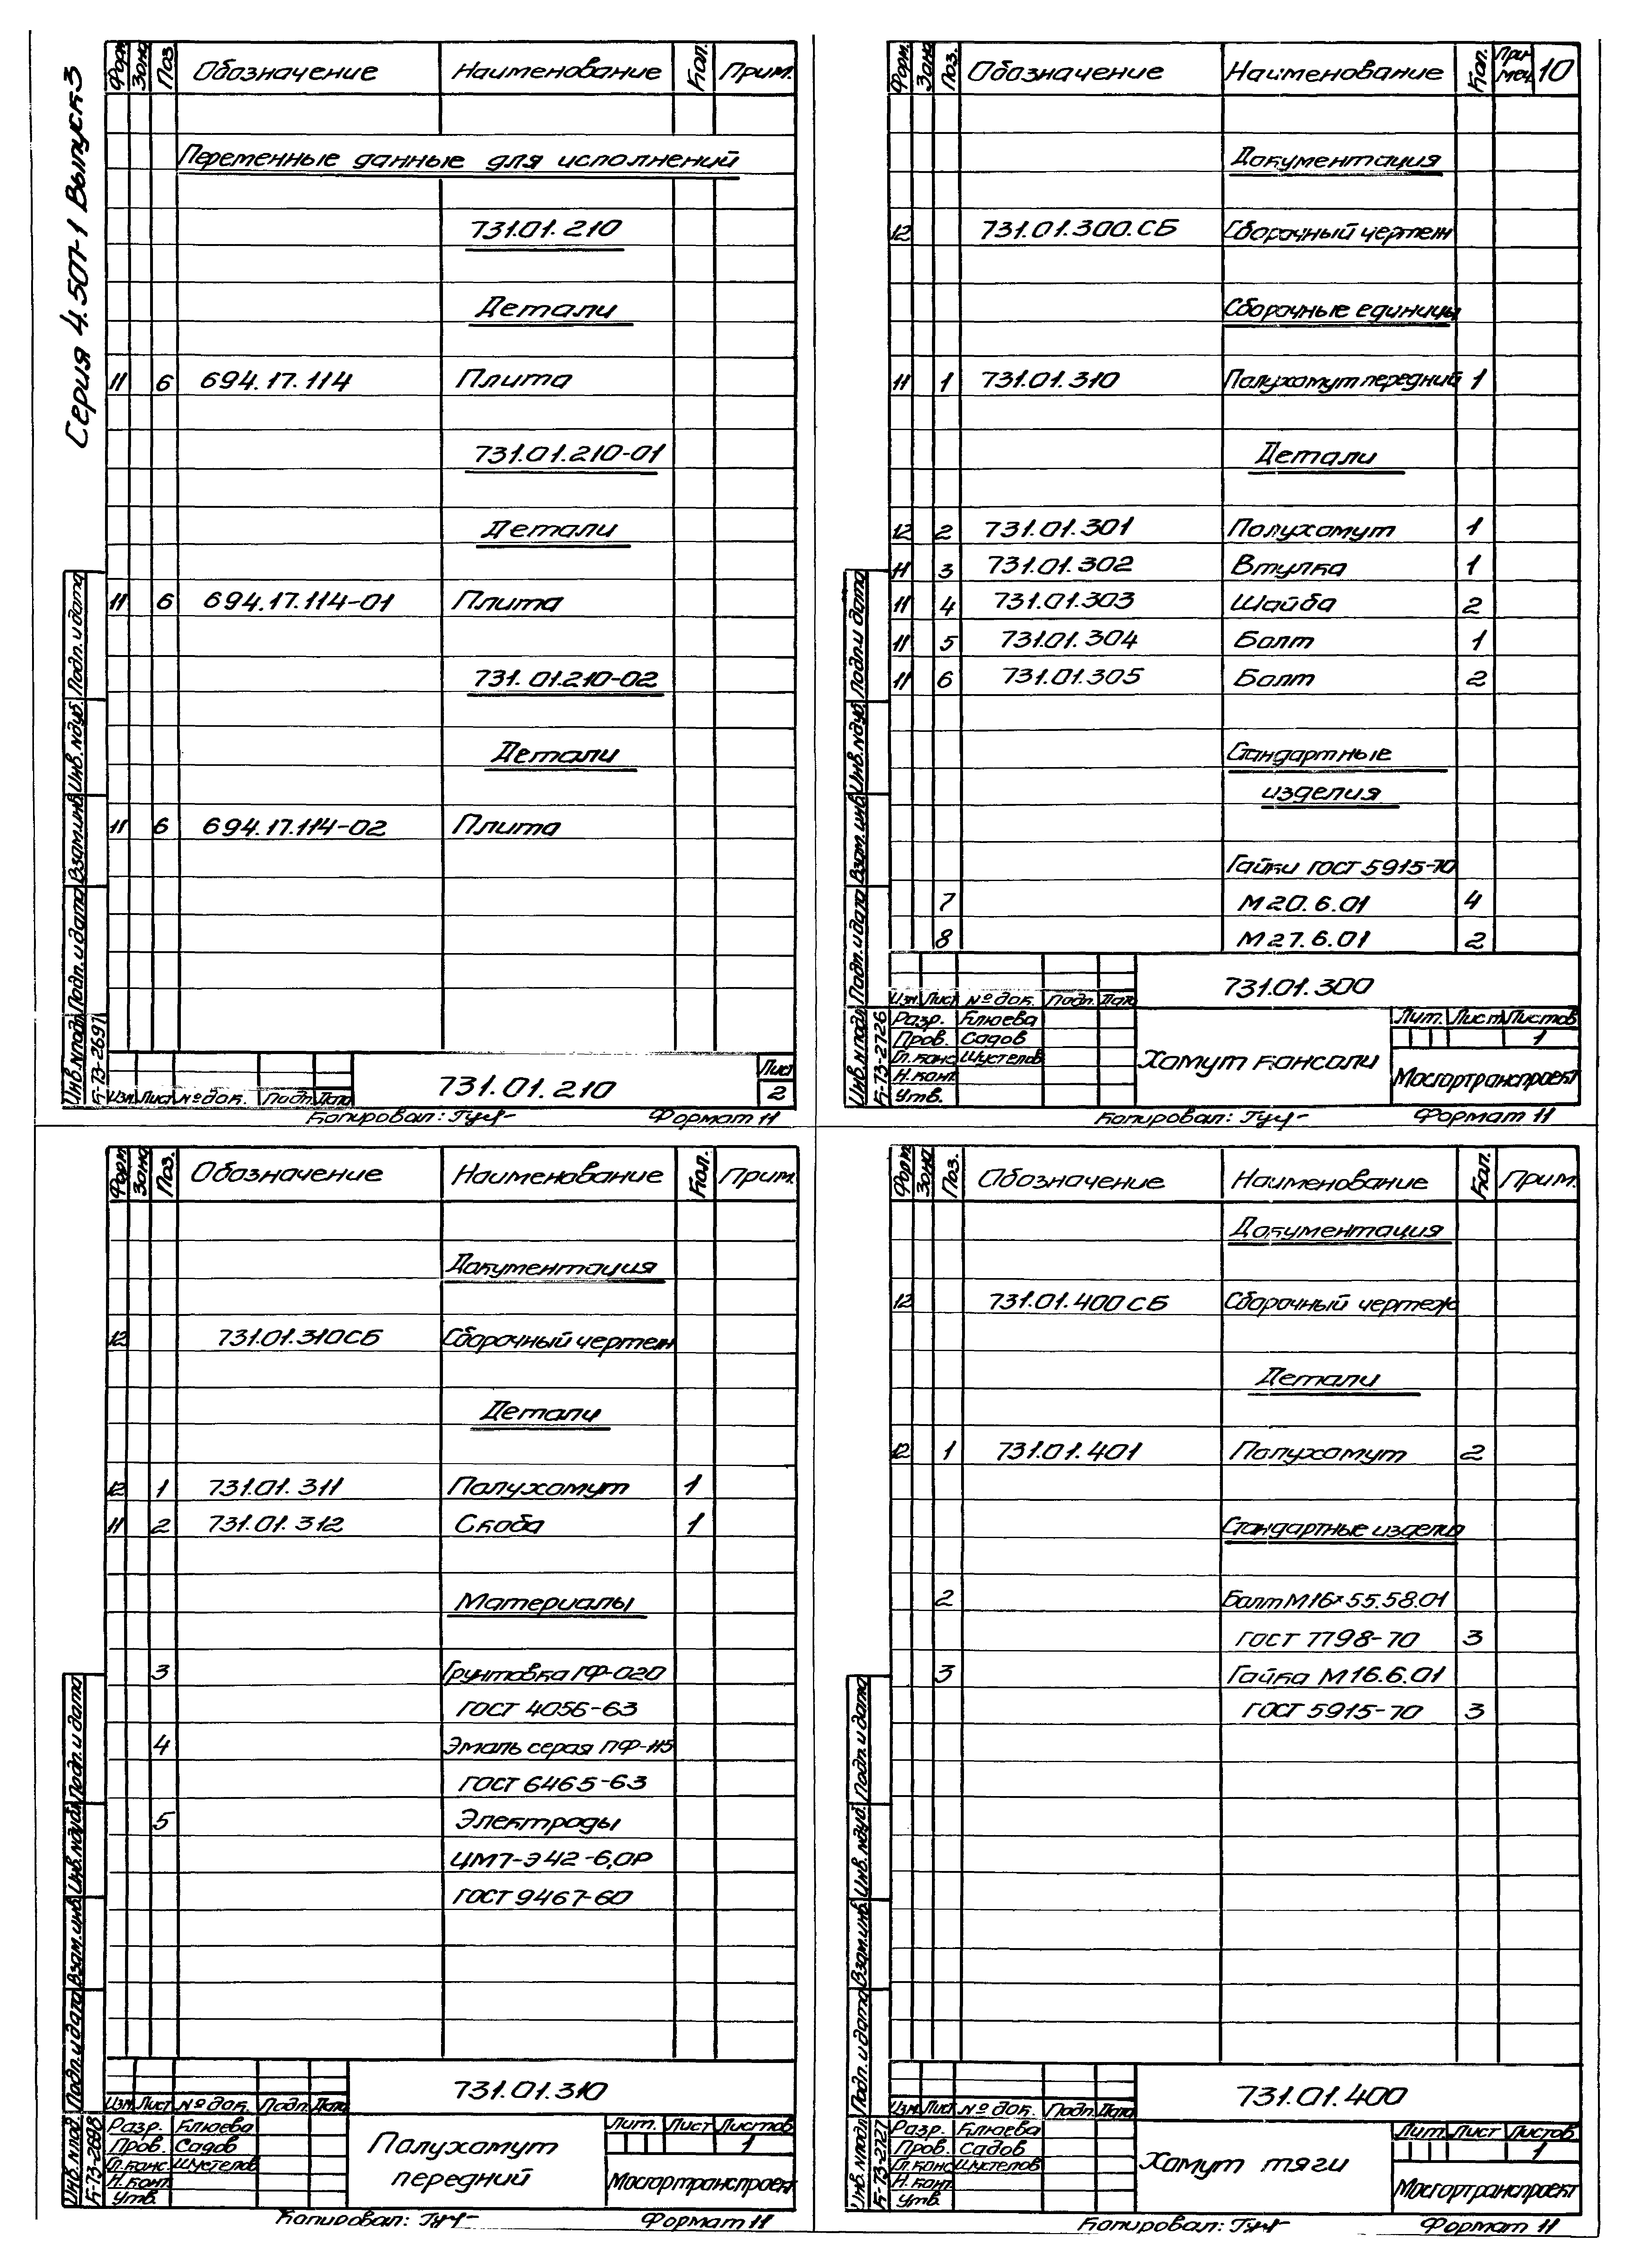 Серия 4.507-1 Выпуск 3
Форм. Зона Поз. Обозначение Наименование Кол. Прим.
Переменные данные для исполнений
731.01.210
Детали
11 6 694.17.114 Плита
731.01.210-01
Детали
11 6 694.17.114-01 Плита
731.01.210-02
Детали
11 6 694.17.114-02 Плита
Инв.№подл. Подп. и дата Взам.инв. Инв.№дуб. Подп. и дата
Б-73-2697
731.01.210
Лист
2
Изм. Лист № док. Подп. Дата
Копировал: Формат 11
Форм. Зона Поз. Обозначение Наименование Кол. Примеч. 10
Документация
12 731.01.300.СБ Сборочный чертеж
Сборочные единицы
11 1 731.01.310 Полухомут передний 1
Детали
12 2 731.01.301 Полухомут 1
11 3 731.01.302 Втулка 1
11 4 731.01.303 Шайба 2
11 5 731.01.304 Болт 1
11 6 731.01.305 Болт 2
Стандартные
изделия
Гайки ГОСТ 5915-70
7 М20.6.01 4
8 М27.6.01 2
Инв.№подл. Подп. и дата Взам. инв. Инв.№дуб. Подп. и дата
Б-73-2726
731.01.300
Изм. Лист № док. Подп. Дата
Разр. Клюева
Пров. Садов
Гл.конс. Шустелов
Н.конт.
Утв.
Хомут консоли
Лит. Лист Листов
1
Мосгортранспроект
Копировал: Формат 11
Форм. Зона Поз. Обозначение Наименование Кол. Прим.
Документация
12 731.01.310СБ Сборочный чертеж
Детали
12 1 731.01.311 Полухомут 1
11 2 731.01.312 Скоба 1
Материалы
3 Грунтовка ГФ-020
ГОСТ 4056-63
4 Эмаль серая ПФ-115
ГОСТ 6465-63
5 Электроды
ЦМ7-Э42-6,0Р
ГОСТ 9467-60
Инв.№подл. Подп. и дата Взам.инв. Инв.№дуб. Подп. и дата
Б-73-2698
731.01.310
Изм. Лист № док. Подп. Дата
Разр. Клюева
Пров. Садов
Гл.конс. Шустелов
Н.конт.
Утв.
Полухомут
передний
Лит. Лист Листов
1
Мосгортранспроект
Копировал: Формат 11
Форм. Зона Поз. Обозначение Наименование Кол. Прим.
Документация
12 731.01.400СБ Сборочный чертеж
Детали
12 1 731.01.401 Полухомут 2
Стандартные изделия
2 Болт М16×55.58.01
ГОСТ 7798-70 3
3 Гайка М16.6.01
ГОСТ 5915-70 3
Инв.№подл. Подп. и дата Взам.инв. Инв.№дуб. Подп. и дата
Б-73-2727
731.01.400
Изм. Лист № док. Подп. Дата
Разр. Клюева
Пров. Садов
Гл.конс. Шустелов
Н.конт.
Утв.
Хомут тяги
Лит. Лист Листов
1
Мосгортранспроект
Копировал: Формат 11